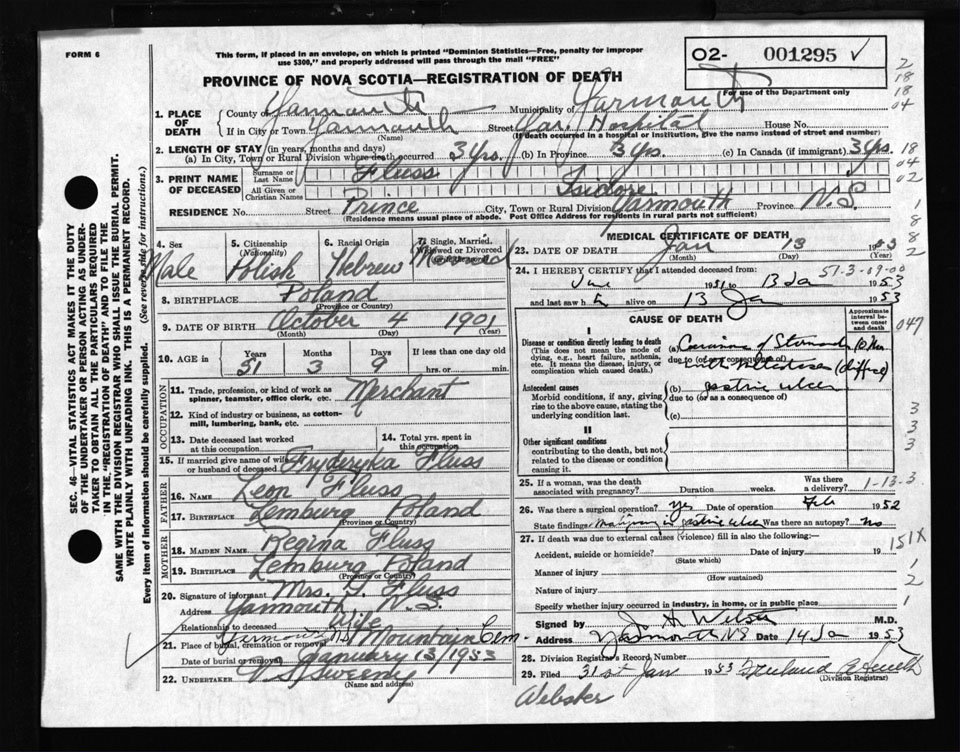 FORM 6
This form, if placed in an envelope, on which is printed "Dominion Statistics—Free, penalty for improper
use $300," and properly addressed will pass through the mail "FREE"
O2- 001295 ✓
For use of the Department only
PROVINCE OF NOVA SCOTIA—REGISTRATION OF DEATH
1. PLACE OF DEATH
County of Yarmouth Municipality of Yarmouth
If in City or Town Yarmouth Street Yar. Hospital House No.
(Name) (If death occurred in a hospital or institution, give the name instead of street and number)
2. LENGTH OF STAY (in years, months and days)
(a) In City, Town or Rural Division where death occurred 3 yrs. (b) In Province 3 yrs. (c) In Canada (if immigrant) 3 yrs.
3. PRINT NAME OF DECEASED
Surname or Last Name Fluss
All Given or Christian Names Isidore
RESIDENCE No. Street Prince City, Town or Rural Division Yarmouth Province N.S.
(Residence means usual place of abode. Post Office Address for residents in rural parts not sufficient)
4. Sex Male
5. Citizenship (Nationality) Polish
6. Racial Origin Hebrew
7. Single, Married, Widowed or Divorced Married
8. BIRTHPLACE Poland
(Province or Country)
9. DATE OF BIRTH October 4 1901
(Month) (Day) (Year)
10. AGE in Years Months Days If less than one day old
51 3 9 hrs. or min.
OCCUPATION
11. Trade, profession, or kind of work as
spinner, teamster, office clerk, etc. Merchant
12. Kind of industry or business, as cotton-
mill, lumbering, bank, etc.
13. Date deceased last worked
at this occupation
14. Total yrs. spent in
this occupation
15. If married give name of wife
or husband of deceased Fryderyka Fluss
FATHER
16. NAME Leon Fluss
17. BIRTHPLACE Lemburg Poland
(Province or Country)
MOTHER
18. MAIDEN NAME Regina Fluss
19. BIRTHPLACE Lemburg Poland
(Province or Country)
20. Signature of informant Mrs. I. Fluss
Address Yarmouth N.S.
Relationship to deceased Wife
21. Place of burial, cremation or removal Yarmouth N.S. Mountain Cem.
Date of burial or removal January 13/1953
22. UNDERTAKER V.S. Sweeny
(Name and address)
MEDICAL CERTIFICATE OF DEATH
23. DATE OF DEATH Jan 13 1953
(Month) (Day)
24. I HEREBY CERTIFY that I attended deceased from: 57-3-09-00
June 1951 to 13 Jan 1953
and last saw h alive on 13 Ja 1953
CAUSE OF DEATH
Approximate interval between onset and death
I
Disease or condition directly leading to death
(This does not mean the mode of
dying, e.g., heart failure, asthenia,
etc. It means the disease, injury, or
complication which caused death.)
(a) Carcinoma of Stomach
due to (or as a consequence of)
with metastases (diffuse)
Antecedent causes
Morbid conditions, if any, giving
rise to the above cause, stating the
underlying condition last.
(b) gastric ulcer
due to (or as a consequence of)
(c)
II
Other significant conditions
contributing to the death, but not
related to the disease or condition
causing it.
25. If a woman, was the death
associated with pregnancy? Duration weeks. Was there a delivery? 1-13-3
26. Was there a surgical operation? Yes Date of operation Feb 1952
State findings Malignancy in gastric ulcer Was there an autopsy? no
27. If death was due to external causes (violence) fill in also the following:—
Accident, suicide or homicide? Date of injury 19 151X
(State which)
Manner of injury
(How sustained)
Nature of injury
Specify whether injury occurred in industry, in home, or in public place
Signed by Webster M.D.
Address Yarmouth NS Date 14 Ja 1953
28. Division Registrar's Record Number
29. Filed 31st Jan 1953
(Division Registrar)
Webster
2
18
18
04
18
04
02
1
8
8
2
047
3
3
3
1
2
1
SEC. 46—VITAL STATISTICS ACT MAKES IT THE DUTY
OF THE UNDERTAKER OR PERSON ACTING AS UNDER-
TAKER TO OBTAIN ALL THE PARTICULARS REQUIRED
IN THE "REGISTRATION OF DEATH" AND TO FILE THE
SAME WITH THE DIVISION REGISTRAR WHO SHALL ISSUE THE BURIAL PERMIT.
WRITE PLAINLY WITH UNFADING INK. THIS IS A PERMANENT RECORD.
Every item of information should be carefully supplied. (See reverse side for instructions.)